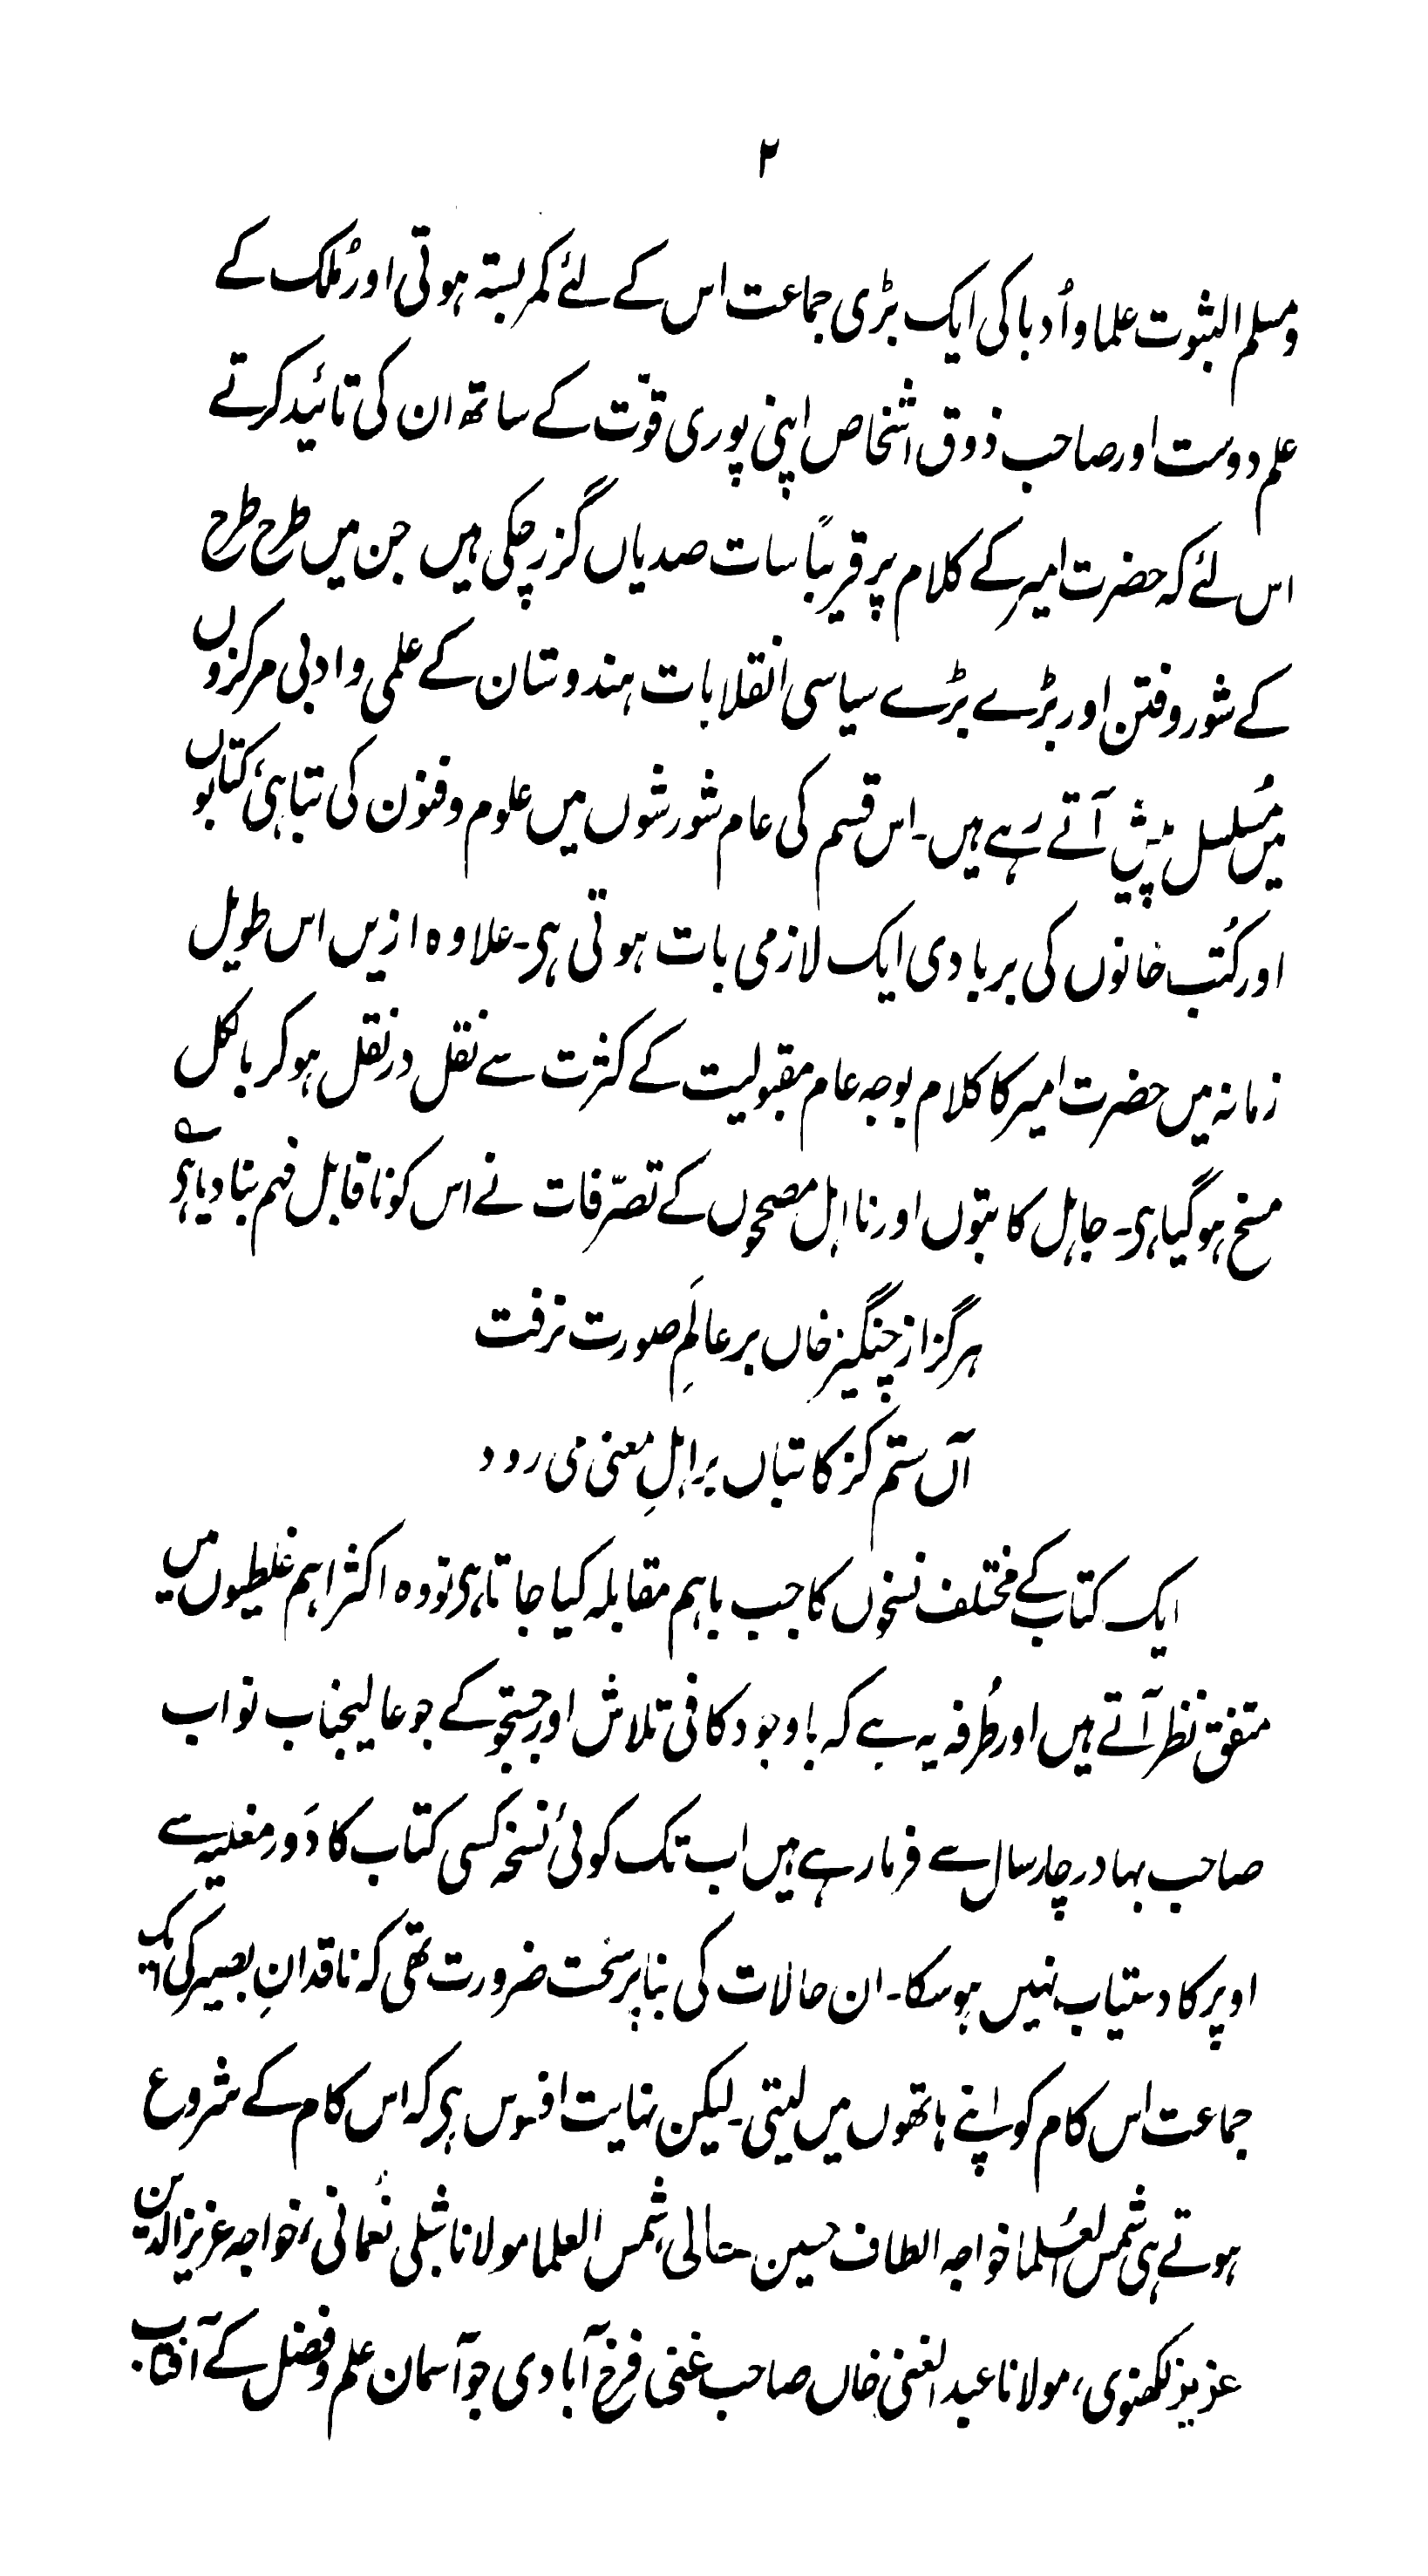 ۲
ومسلم الثبوت علما و اُدبا کی ایک بڑی جماعت اس کے لئے کمر بستہ ہوتی اور مُلک کے
علم دوست اور صاحب ذوق اشخاص اپنی پوری قوّت کے ساتھ ان کی تائید کرتے
اس لئے کہ حضرت امیر کے کلام پر قریباً سات صدیاں گزر چکی ہیں جن میں طرح طرح
کے شور و فتن اور بڑے بڑے سیاسی انقلابات ہندوستان کے علمی و ادبی مرکزوں
میں مُسلسل پیش آتے رہے ہیں۔ اس قسم کی عام شورشوں میں علوم و فنون کی تباہی، کتابوں
اور کُتب خانوں کی بربادی ایک لازمی بات ہوتی ہی۔ علاوہ ازیں اس طویل
زمانہ میں حضرت امیر کا کلام بوجہ عام مقبولیت کے کثرت سے نقل در نقل ہو کر بالکل
مسخ ہو گیا ہی۔ جاہل کاتبوں اور نااہل مصححوں کے تصرّفات نے اس کو ناقابل فہم بنا دیا ہی
ہرگز از چنگیز خاں بر عالَمِ صورت نرفت
آں ستم کز کاتباں بر اہلِ معنی می رود
ایک کتاب کے مختلف نسخوں کا جب باہم مقابلہ کیا جاتا ہی تو وہ اکثر اہم غلطیوں میں
متفق نظر آتے ہیں اور طُرفہ یہ ہے کہ باوجود کافی تلاش اور جستجو کے جو عالیجناب نواب
صاحب بہادر چار سال سے فرما رہے ہیں اب تک کوئی نسخہ کسی کتاب کا دَور مغلیہ سے
اوپر کا دستیاب نہیں ہو سکا۔ ان حالات کی بنا پر سخت ضرورت تھی کہ ناقدانِ بصیر کی ایک
جماعت اس کام کو اپنے ہاتھوں میں لیتی۔ لیکن نہایت افسوس ہی کہ اس کام کے شروع
ہوتے ہی شمس العُلما خواجہ الطاف حسین حالی، شمس العلما مولانا شبلی نُعمانی، خواجہ عزیز الدین
عزیز لکھنوی، مولانا عبد الغنی خاں صاحب غنی فرخ آبادی جو آسمان علم و فضل کے آفتاب